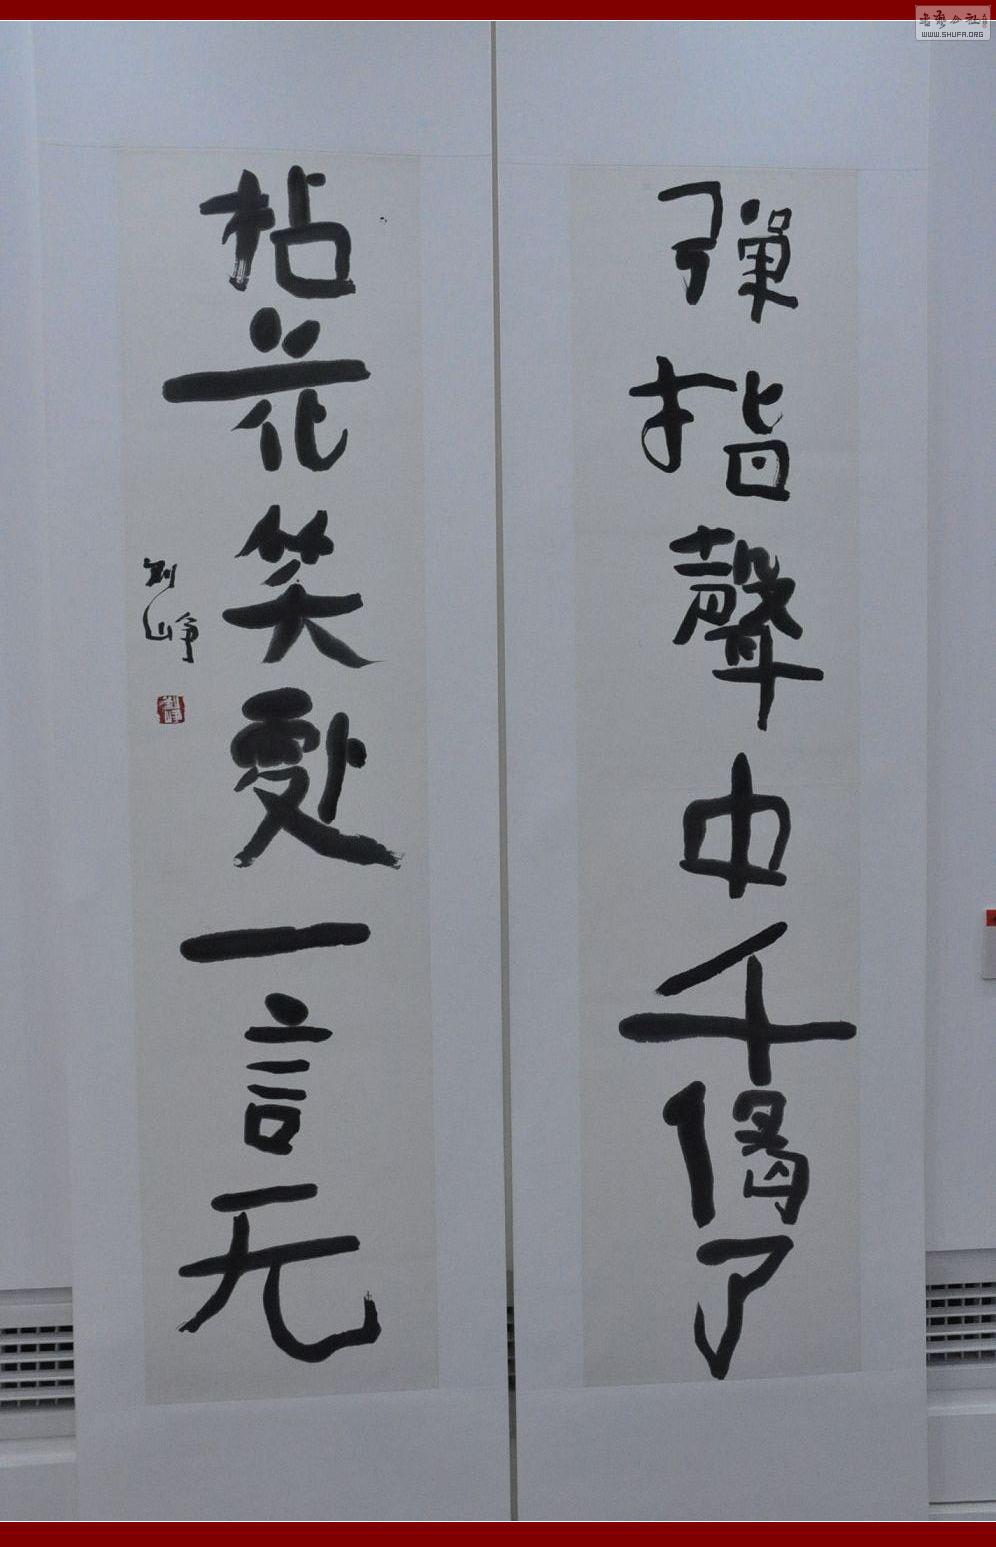 彈指聲中千偈了
拈花笑處一言无
刘峥
WWW.SHUFA.ORG